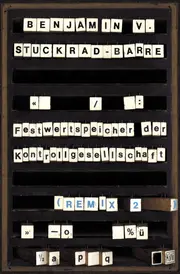 BENJAMIN V.
STUCKRAD-BARRE
« / :
Festwertspeicher der
Kontrollgesellschaft
(REMIX 2
» —o %ü
½ a p q ¼ §